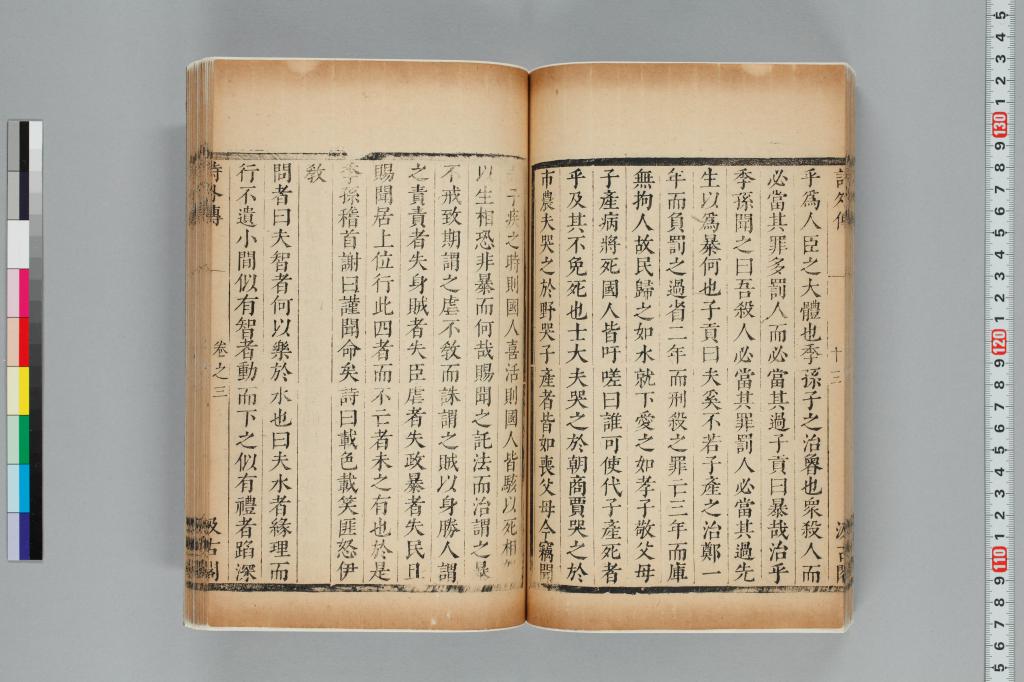 乎爲人臣之大體也季孫子之治魯也衆殺人而
必當其罪多罰人而必當其過子貢曰暴哉治乎
季孫聞之曰吾殺人必當其罪罰人必當其過先
生以爲暴何也子貢曰夫奚不若子產之治鄭一
年而負罰之過省二年而刑殺之罪亡三年而庫
無拘人故民歸之如水就下愛之如孝子敬父母
子產病將死國人皆吁嗟曰誰可使代子產死者
乎及其不免死也士大夫哭之於朝商賈哭之於
市農夫哭之於野哭子產者皆如喪父母今竊聞
子疾之時則國人喜活則國人皆駭以死相
以生相恐非暴而何哉賜聞之託法而治謂之暴
不戒致期謂之虐不敎而誅謂之賊以身勝人謂
之責責者失身賊者失臣虐者失政暴者失民且
賜聞居上位行此四者而不亡者未之有也於是
季孫稽首謝曰謹聞命矣詩曰載色載笑匪怒伊
敎
問者曰夫智者何以樂於水也曰夫水者緣理而
行不遺小間似有智者動而下之似有禮者蹈深
詩外傳
卷之三
汲古閣